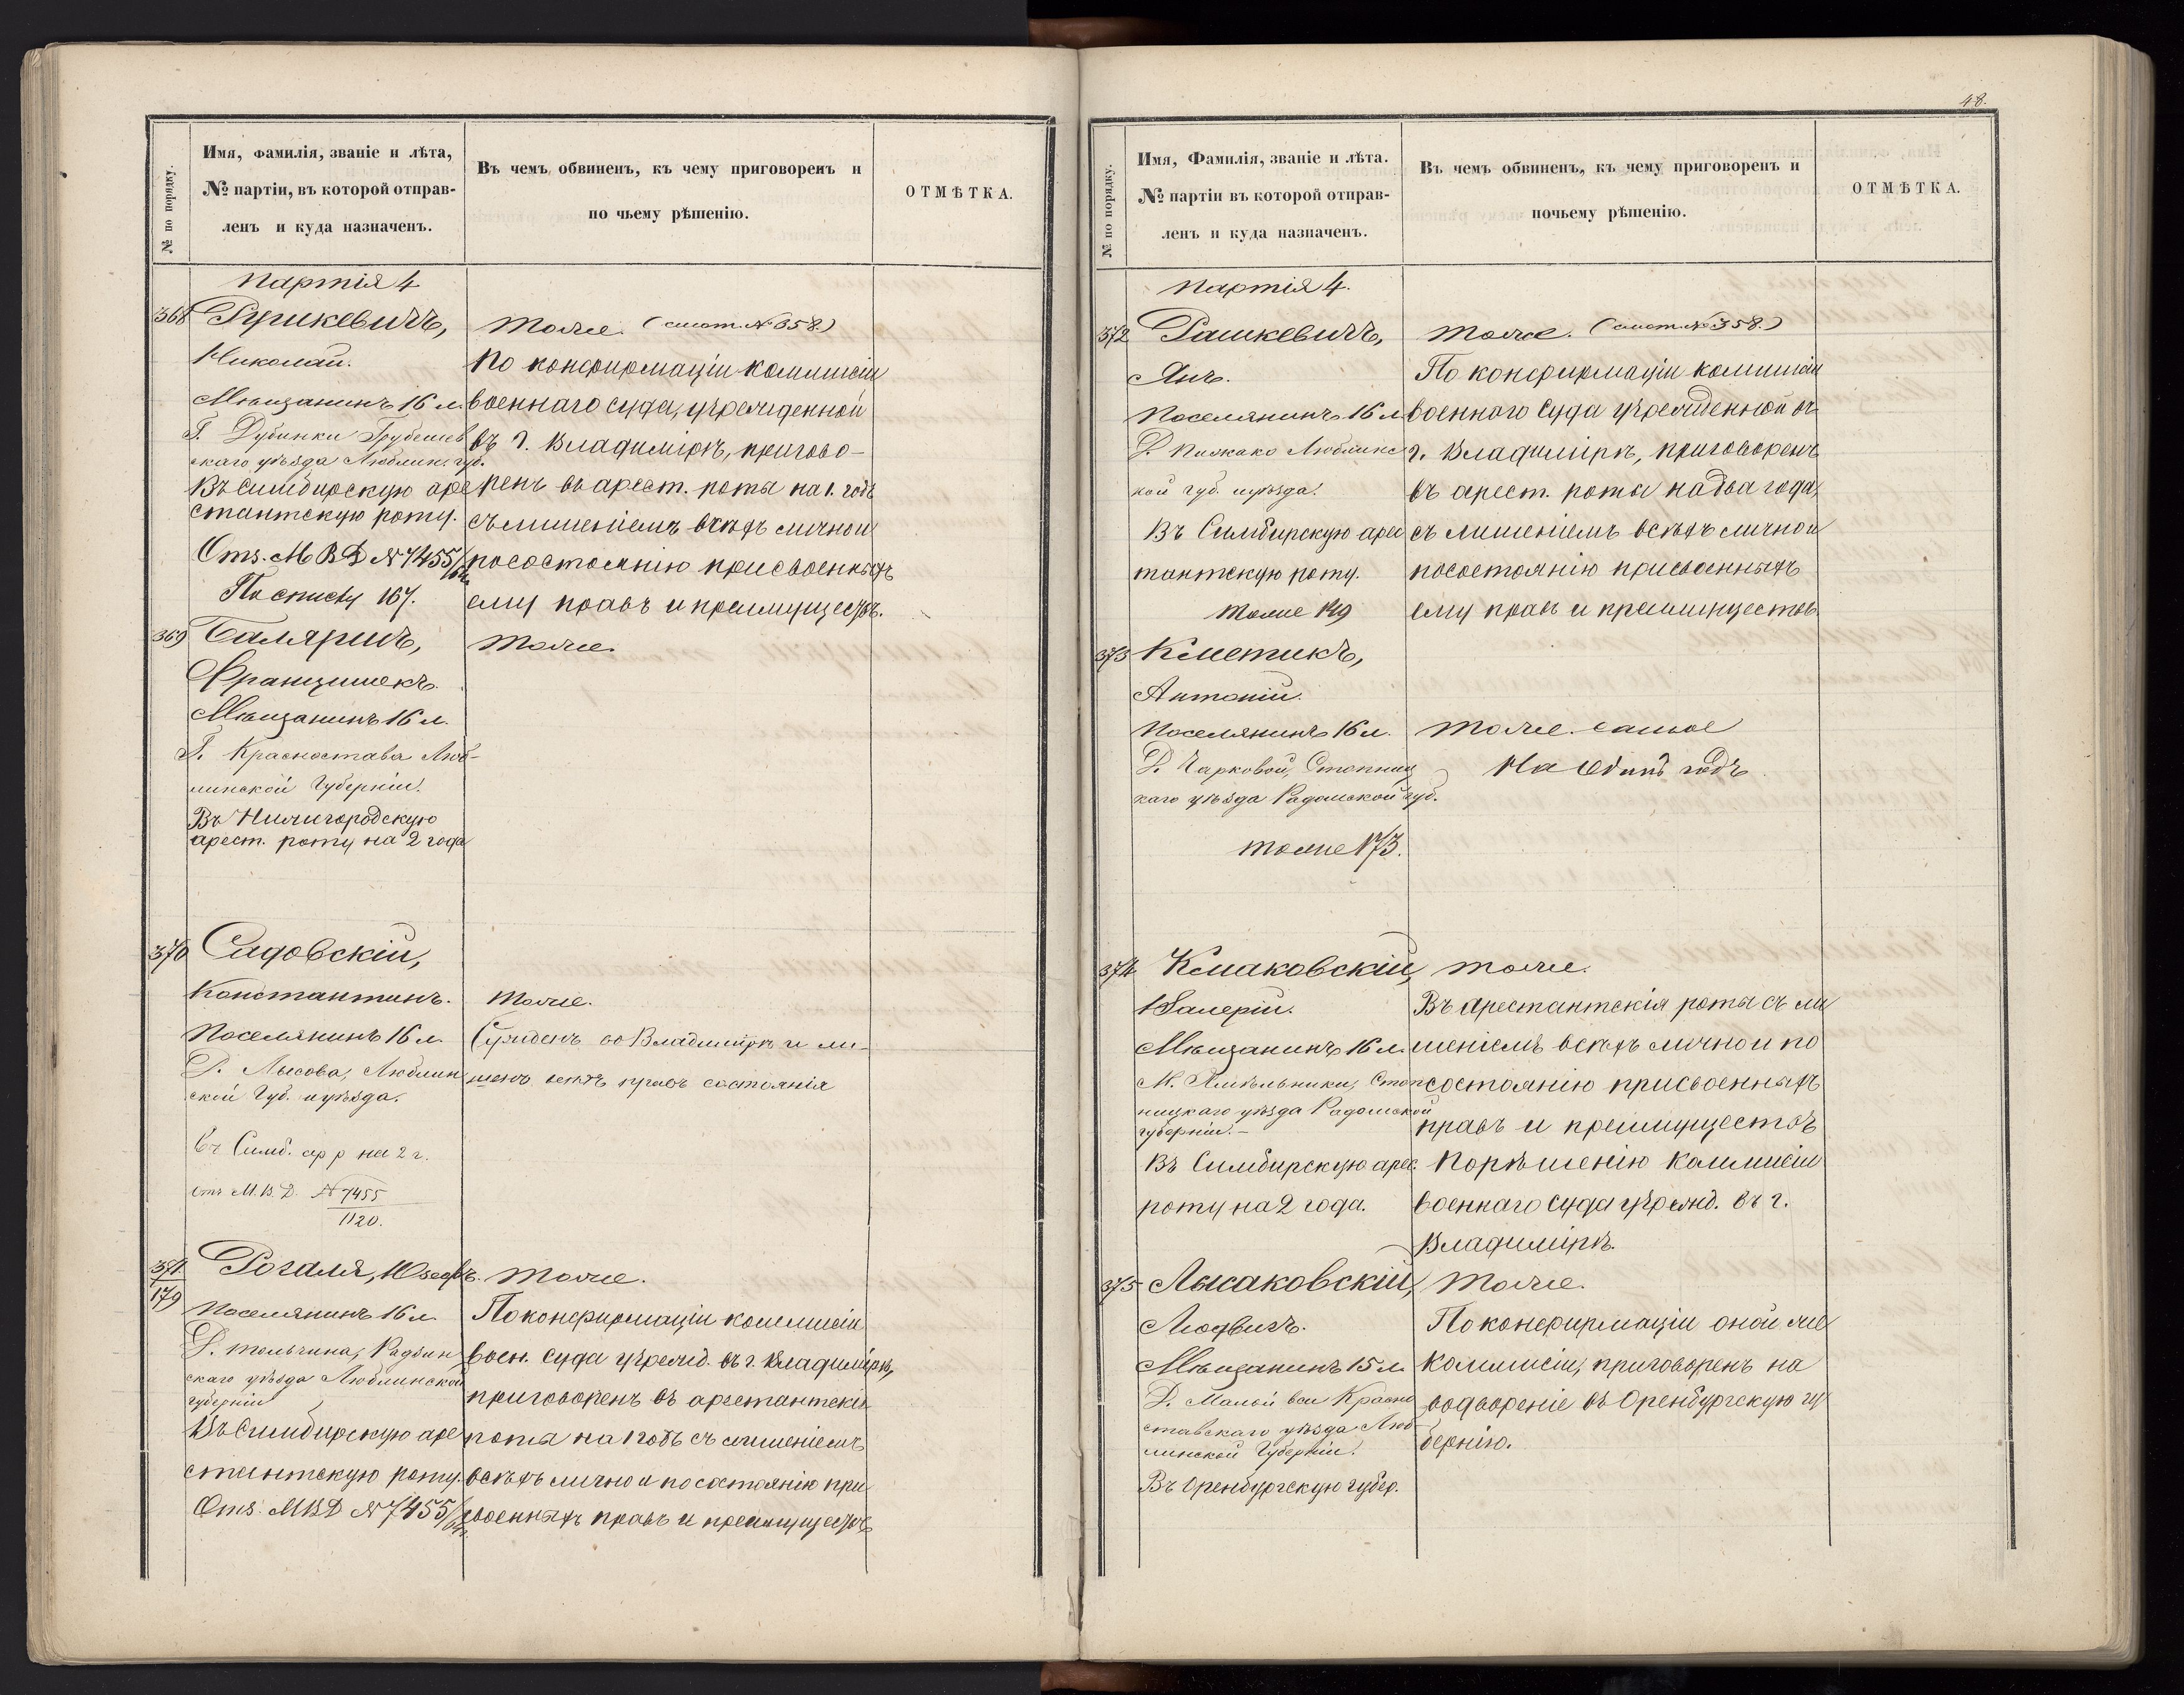 № по порядку.
Имя, фамилія, званіе и лѣта,
№ партіи, въ которой отправ-
ленъ и куда назначенъ.
Въ чемъ обвиненъ, къ чему приговоренъ и
по чьему рѣшенію.
ОТМѢТКА.
Партія 4
368 Рушкевичъ,
Николай.
Мѣщанинъ 16 л.
Г. Дубинки Грубешев
скаго уѣзда Люблин. губ.
Въ Симбирскую аре
стантскую роту.
Отз. М В Д № 7455/64
По списку 167.
Тоже. (смот. № 358.)
По конфирмаціи комисіи
военнаго суда, учрежденной
въ г. Владимирѣ, пригово-
ренъ въ арест. роты на 1. годъ
съ лишеніемъ всѣхъ лично и
по состоянію присвоенныхъ
ему правъ и преимуществъ.
369
Францишекъ.
Мѣщанинъ 16 л.
Г. Красностава Люб-
линской Губерніи.
Въ Нижигородскую
арест. роту на 2 года
Тоже.
370 Садовскій,
Константинъ.
Поселянинъ 16 л.
Д. Лысова, Люблин
ской Губ. и уѣзда.
Въ Симб. ар р на 2 г.
отз М. В. Д. № 7455
1120.
Тоже.
Сужденъ во Владимірѣ и ли-
шенъ всѣхъ правъ состоянія
371
179
Рогаля, Юзефъ.
Поселянинъ 16 л.
Д. Радзин
скаго уѣзда Люблинской
губерніи
Въ Симбирскую аре
стантскую роту.
Отз. МВД № 7455/64
Тоже.
По конфирмаціи комисіи
воен. суда учрежд. въ г. Владимірѣ,
приговоренъ въ арестантскія
роты на 1 годъ съ лишеніемъ
всѣхъ лично и по состоянію при
своенныхъ правъ и преимуществъ
48.
№ по порядку.
Имя, Фамилія, званіе и лѣта.
№ партіи въ которой отправ-
ленъ и куда назначенъ.
Въ чемъ обвиненъ, къ чему приговоренъ и
почьему рѣшенію.
ОТМѢТКА.
Партія 4.
372 Рашкевичъ,
Янъ.
Поселянинъ 16 л
Д. Люблинс
кой губ. и уѣзда.
Въ Симбирскую арес
тантскую роту.
тоже
Тоже. (смот. № 358.)
По конфирмаціи комисіи
военнаго суда учрежденной въ
г. Владимірѣ, приговоренъ
въ арест. роты на два года,
съ лишеніемъ всѣхъ лично и
по состоянію присвоенныхъ
ему правъ и преимуществъ
373 Клетикъ,
Антоній.
Поселянинъ 16 л.
Д. Чарковой, Стопниц
каго уѣзда Радомской губ.
тоже 173.
Тоже самое
На Одинъ годъ
374 Клаковскій,
Валерій.
Мѣщанинъ 16 л.
М. Хмѣльники, Стоп
ницкаго уѣзда Радомской
губерніи.-
Въ Симбирскую арес.
роту на 2 года.
Тоже.
Въ арестантскія роты съ ли
шеніемъ всѣхъ лично и по
состоянію присвоенныхъ
правъ и преимуществъ
По рѣшенію коммисіи
военнаго суда учрежд. въ г.
Владимірѣ.
375 Лысаковскій,
Людвигъ.
Мѣщанинъ 15 л.
Д. Малой вси Красно
ставскаго уѣзда Люб
линской Губерніи.
Въ Оренбургскую губер.
Тоже.
По конфирмаціи оной же
комисіи, приговоренъ на
водвореніе въ Оренбургскую гу
бернію.